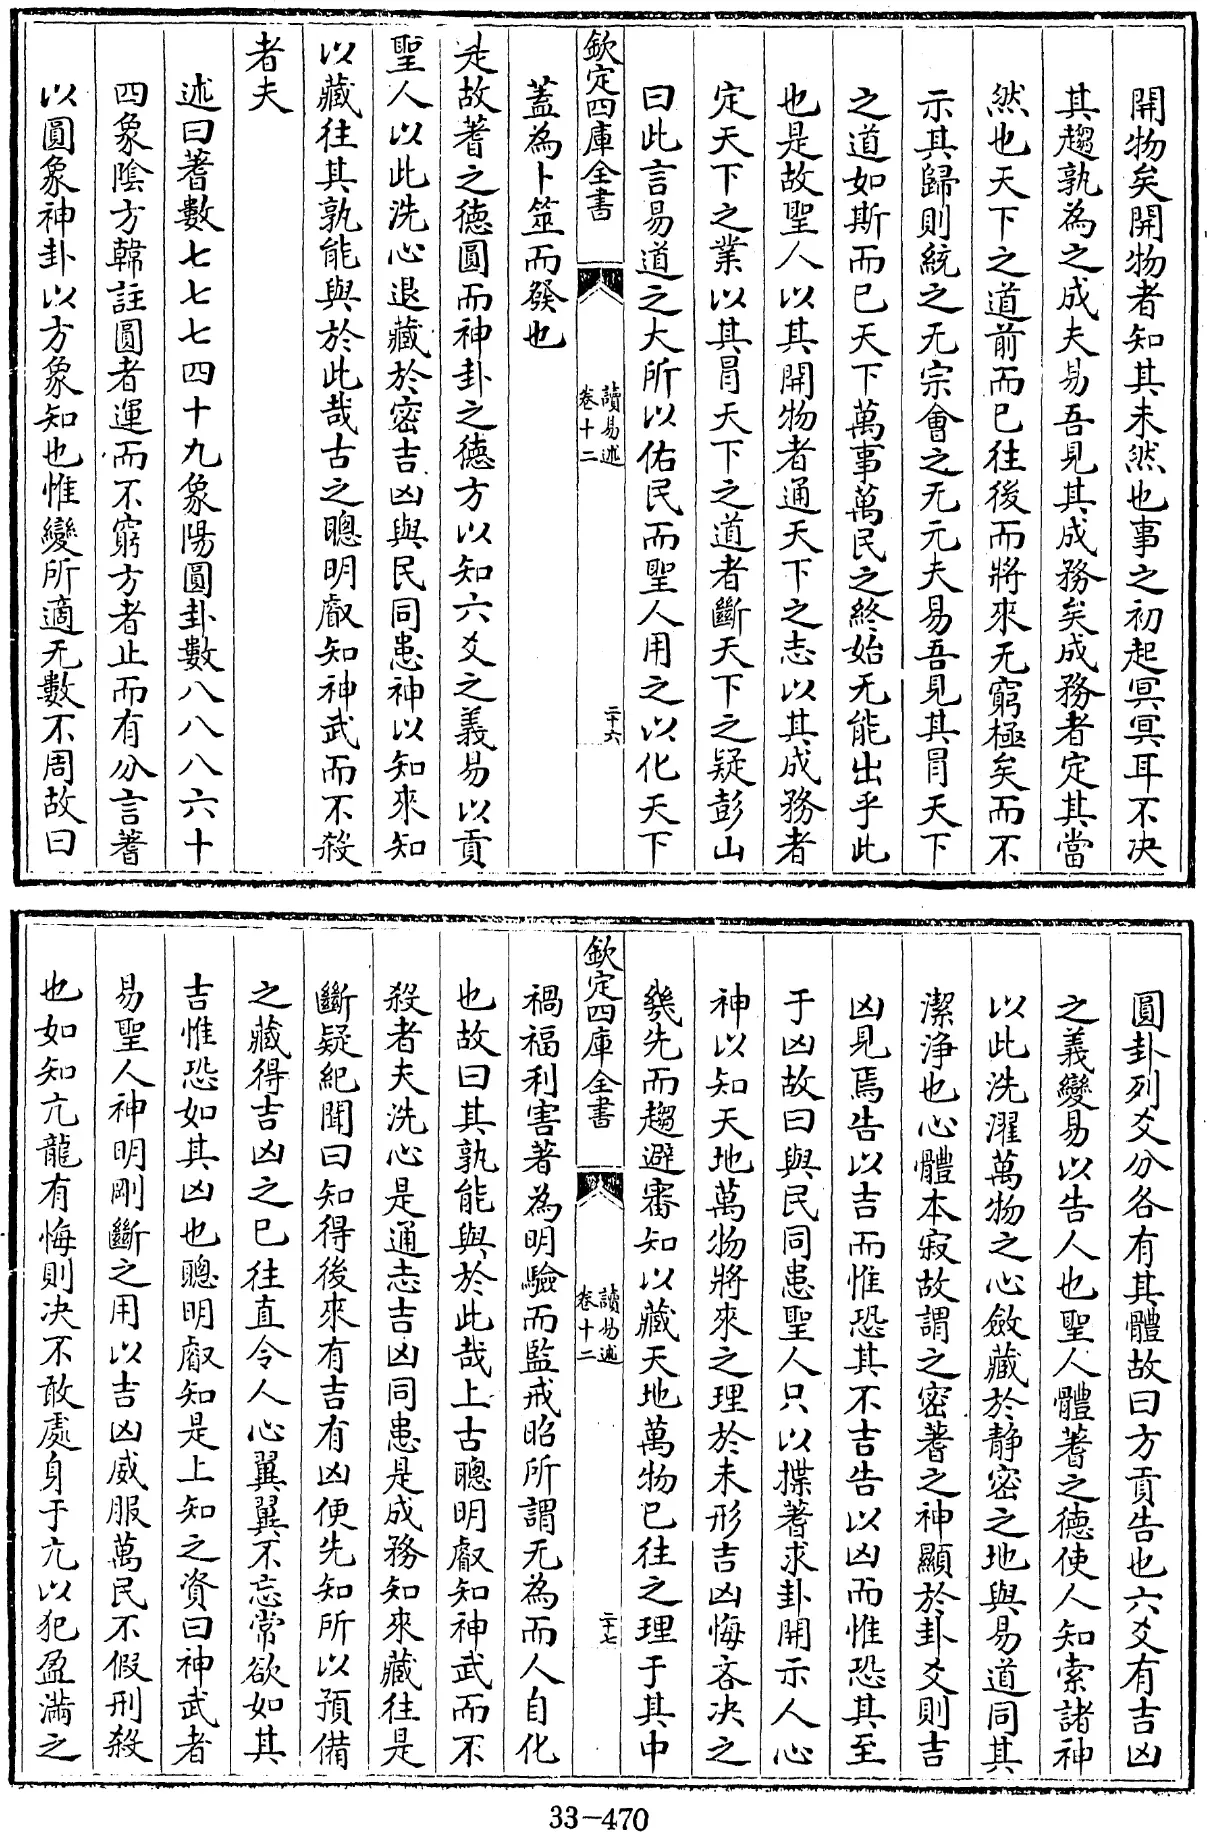 開物矣開物者知其未然也事之初起冥冥耳不决
其趨孰為之成夫易吾見其成務矣成務者定其當
然也天下之道前而已往後而將來无窮極矣而不
示其歸則統之无宗會之无元夫易吾見其冒天下
之道如斯而已天下萬事萬民之終始无能出乎此
也是故聖人以其開物者通天下之志以其成務者
定天下之業以其冒天下之道者斷天下之疑彭山
曰此言易道之大所以佑民而聖人用之以化天下
欽定四庫全書
讀易述
卷十二
二十六
蓋為卜筮而發也
是故蓍之德圓而神卦之德方以知六爻之義易以貢
聖人以此洗心退藏於密吉凶與民同患神以知來知
以藏往其孰能與於此哉古之聰明叡知神武而不殺
者夫
述曰蓍數七七七四十九象陽圓卦數八八八六十
四象陰方韓註圓者運而不窮方者止而有分言蓍
以圓象神卦以方象知也惟變所適无數不周故曰
圓卦列爻分各有其體故曰方貢告也六爻有吉凶
之義變易以告人也聖人體蓍之德使人知索諸神
以此洗濯萬物之心斂藏於静密之地與易道同其
潔浄也心體本寂故謂之密蓍之神顯於卦爻則吉
凶見焉告以吉而惟恐其不吉告以凶而惟恐其至
于凶故曰與民同患聖人只以揲蓍求卦開示人心
神以知天地萬物將來之理於未形吉凶悔吝决之
幾先而趨避審知以藏天地萬物已往之理于其中
欽定四庫全書
讀易述
卷十二
二十七
禍福利害著為明驗而監戒昭所謂无為而人自化
也故曰其孰能與於此哉上古聰明叡知神武而不
殺者夫洗心是通志吉凶同患是成務知來藏往是
斷疑紀聞曰知得後來有吉有凶便先知所以預備
之藏得吉凶之已往直令人心翼翼不忘常欲如其
吉惟恐如其凶也聰明叡知是上知之資曰神武者
易聖人神明剛斷之用以吉凶威服萬民不假刑殺
也如知亢龍有悔則决不敢處身于亢以犯盈滿之
33-470